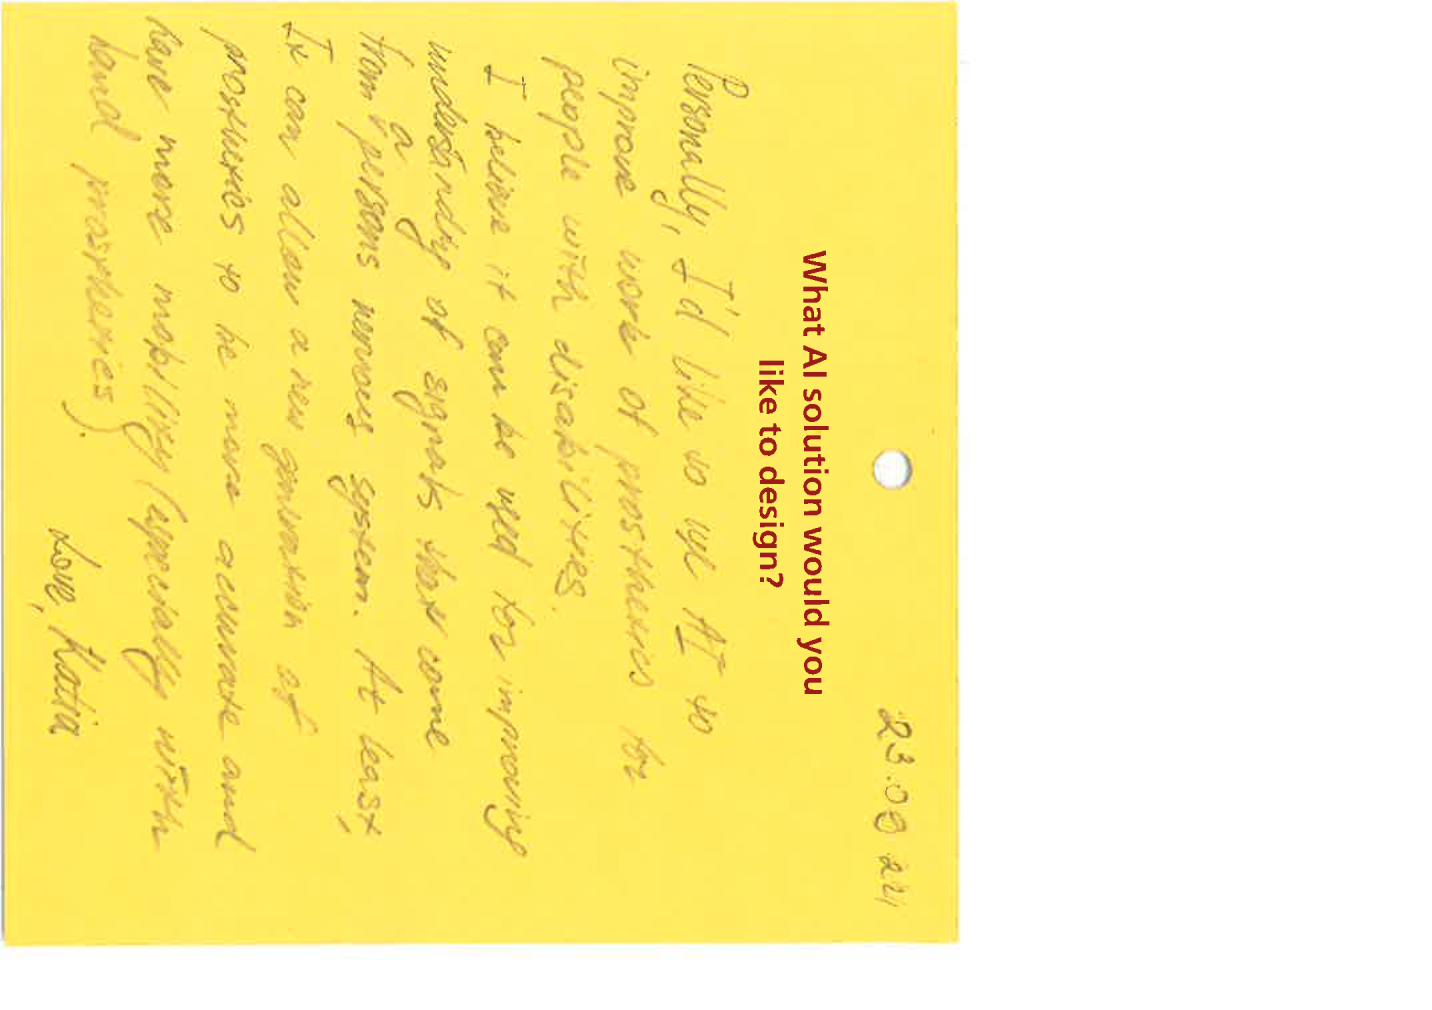 23.08 24
What AI solution would you
like to design?
Personally, I'd like to use AI to
improve work of prosthetics for
people with disabilities.
I believe it can be used for improving
understandig of signals that come
from a persons nervous system. At least,
It can allow a new generation of
prosthetics to be more accurate and
have more mobility (specially with
hand prosthetics).
Love, Katia